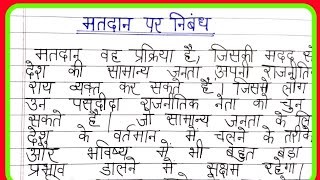 मतदान पर निबंध
मतदान वह प्रक्रिया है, जिसकी मदद से
देश की सामान्य जनता अपनी राजनीति
राय व्यक्त कर सकते हैं। जिससे लोग
उन पसंदीदा राजनीतिक नेता को चुन
सकते है। जो सामान्य जनता के लि
देश के वर्तमान में चलने के तरीके
और भविष्य में भी बहुत बड़ा
प्रभाव डालने में सक्षम रहेगा।